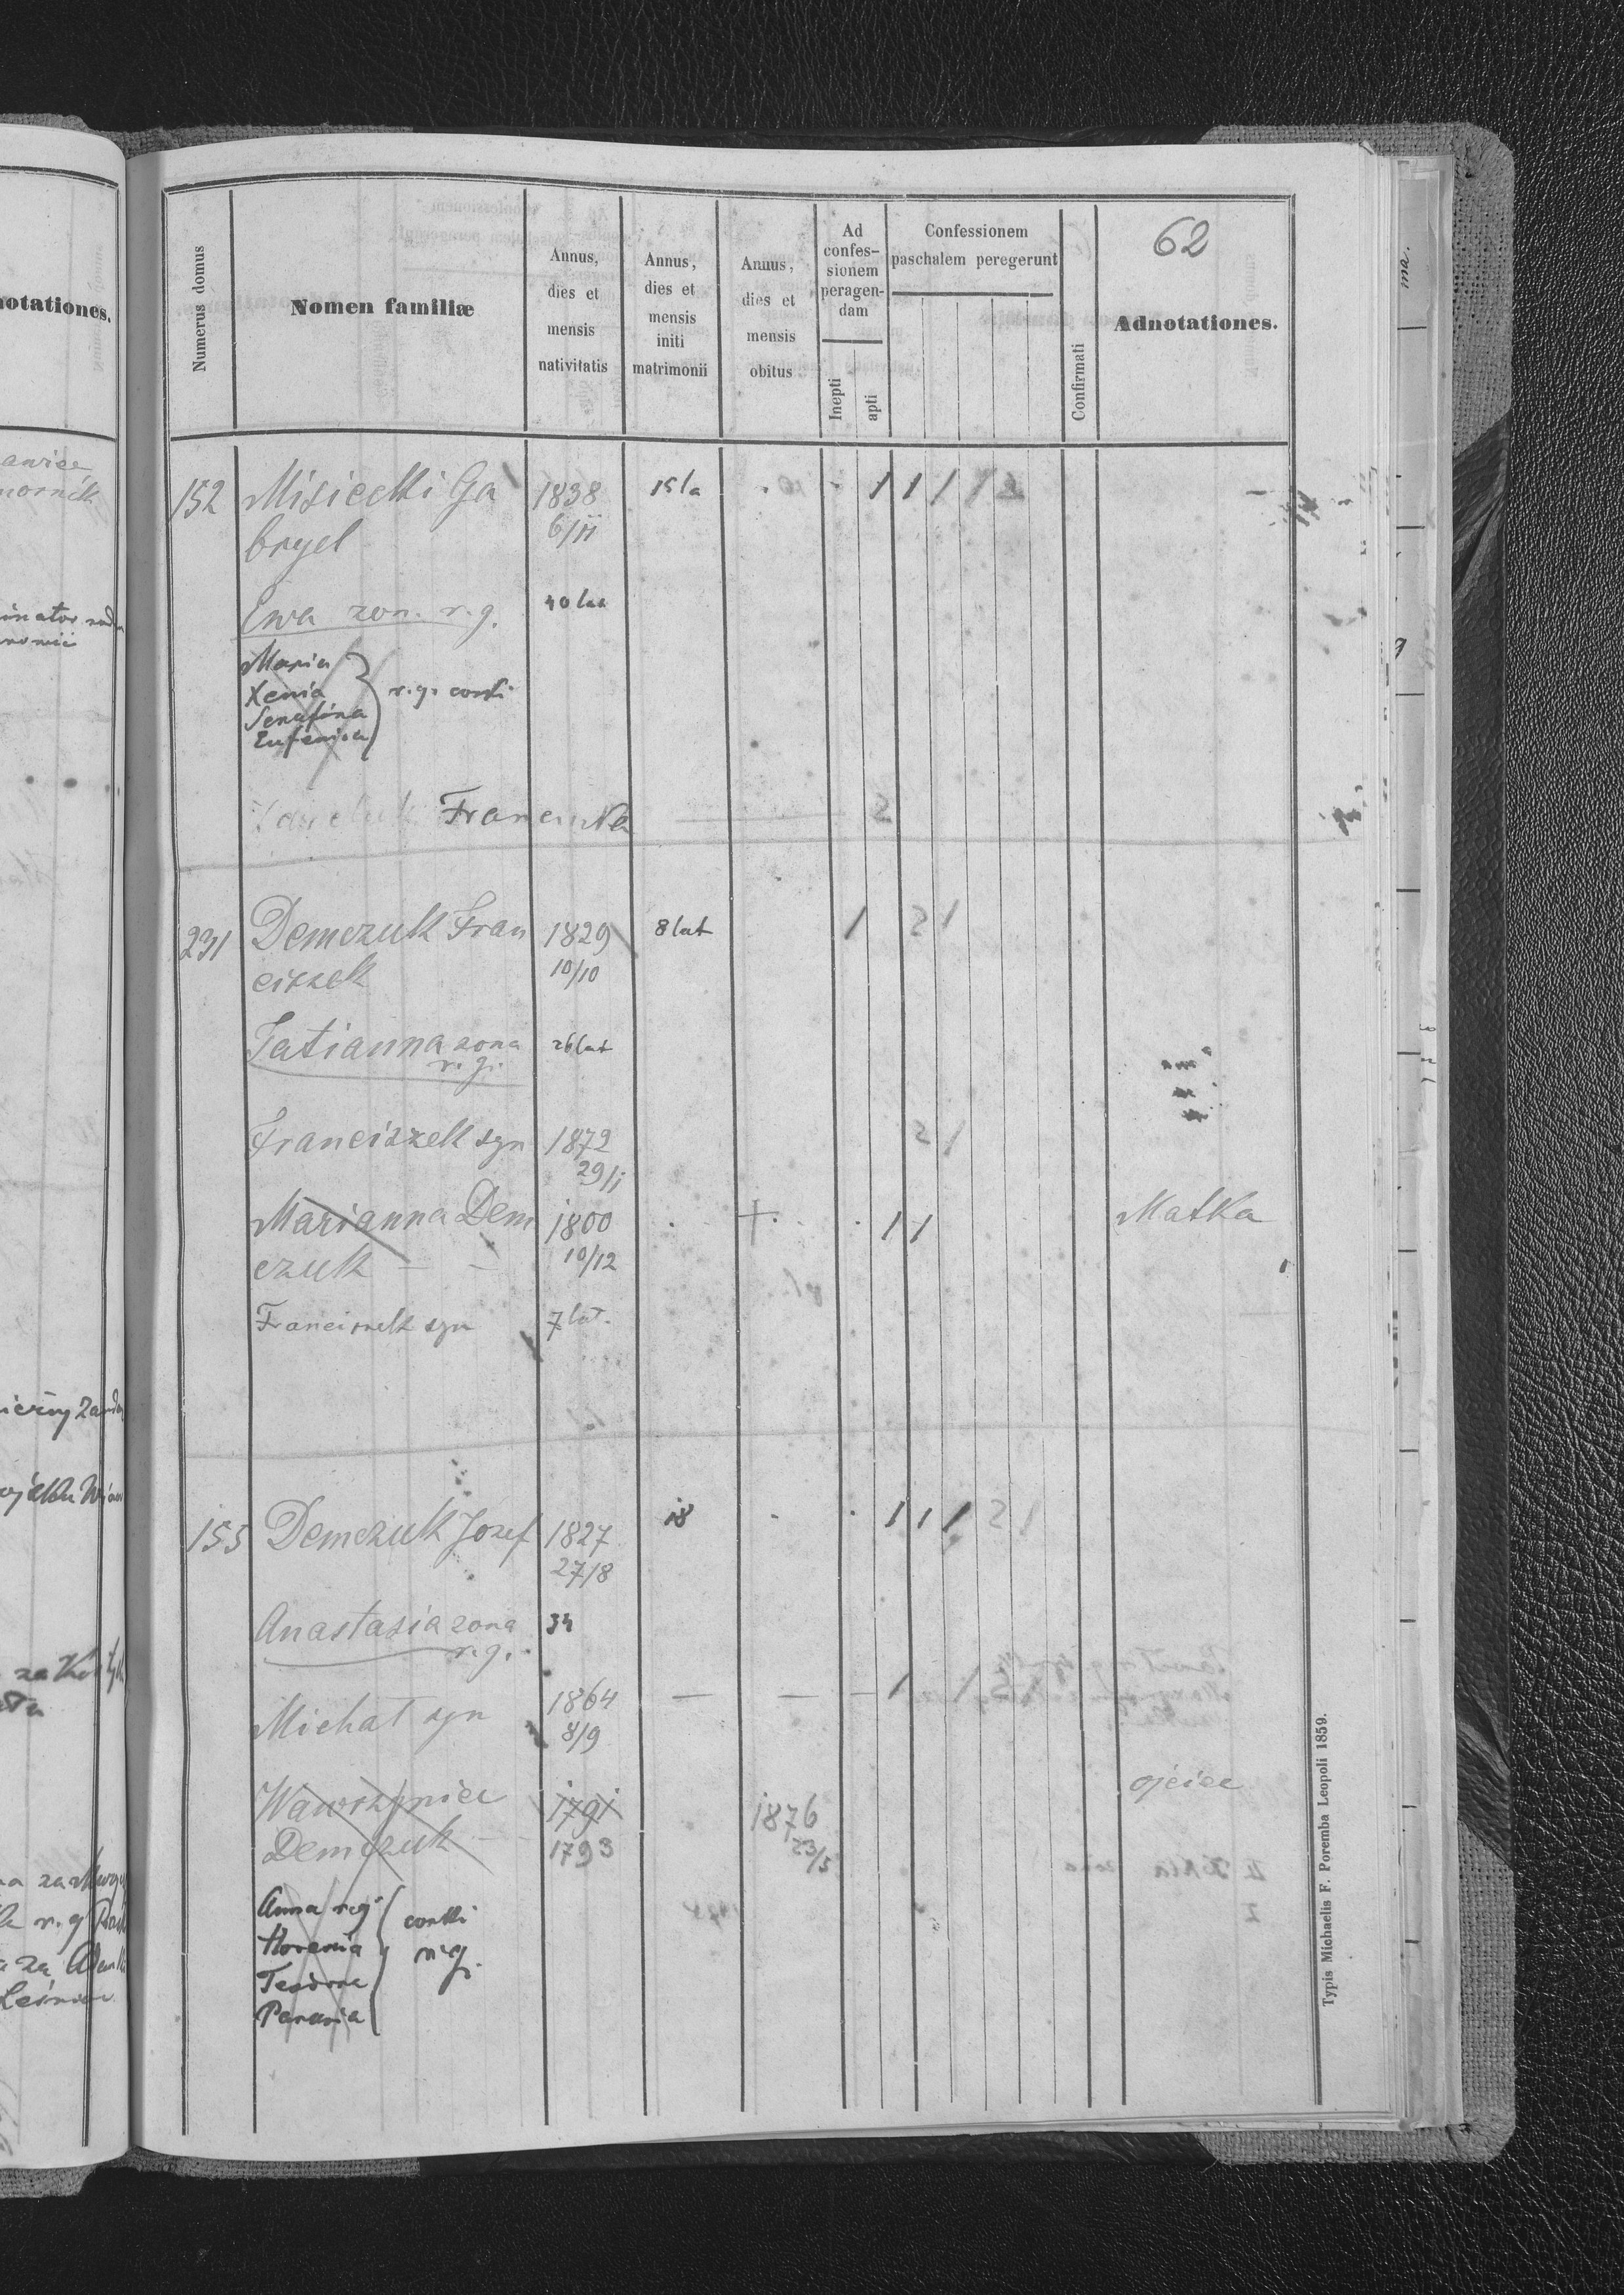 notationes.
62
Numerus domus
Nomen familiæ
Annus,
dies et
mensis
nativitatis
Annus,
dies et
mensis
initi
matrimonii
Annus,
dies et
mensis
obitus
Ad
confes-
sionem
peragen-
dam
Inepti
apti
Confessionem
paschalem peregerunt
Confirmati
Adnotationes.
152 Misiecki Ga 1838 15 la 1 1 1 1 2
bryel 6/11
Ewa zon. r. g. 40 lat
Maria
Xenia r. g. corki
Serafina
Eufemia
2
231 Demczuk Fran 1829 8 lat 1 2 1
ciszek 10/10
Tatianna zona 26 lat
r. g.
Franciszek syn 1872 2 1
29/i
Marianna Dem 1800 +. 1 1 Matka
czuk 10/12
Franciszek syn 7 lat.
155 Demczuk Jozef 1827 18 1 1 1 2 1
27/8
Anastasia zona 34
r. g.
Michał syn 1864 — — — 1 1
8/9
Wawrzyniec 1791 1876 ojciec
Demczuk 1793 23/5
Anna r. g. corki
r. g.
Teodora
Parania
Typis Michaelis F. Poremba Leopoli 1859.